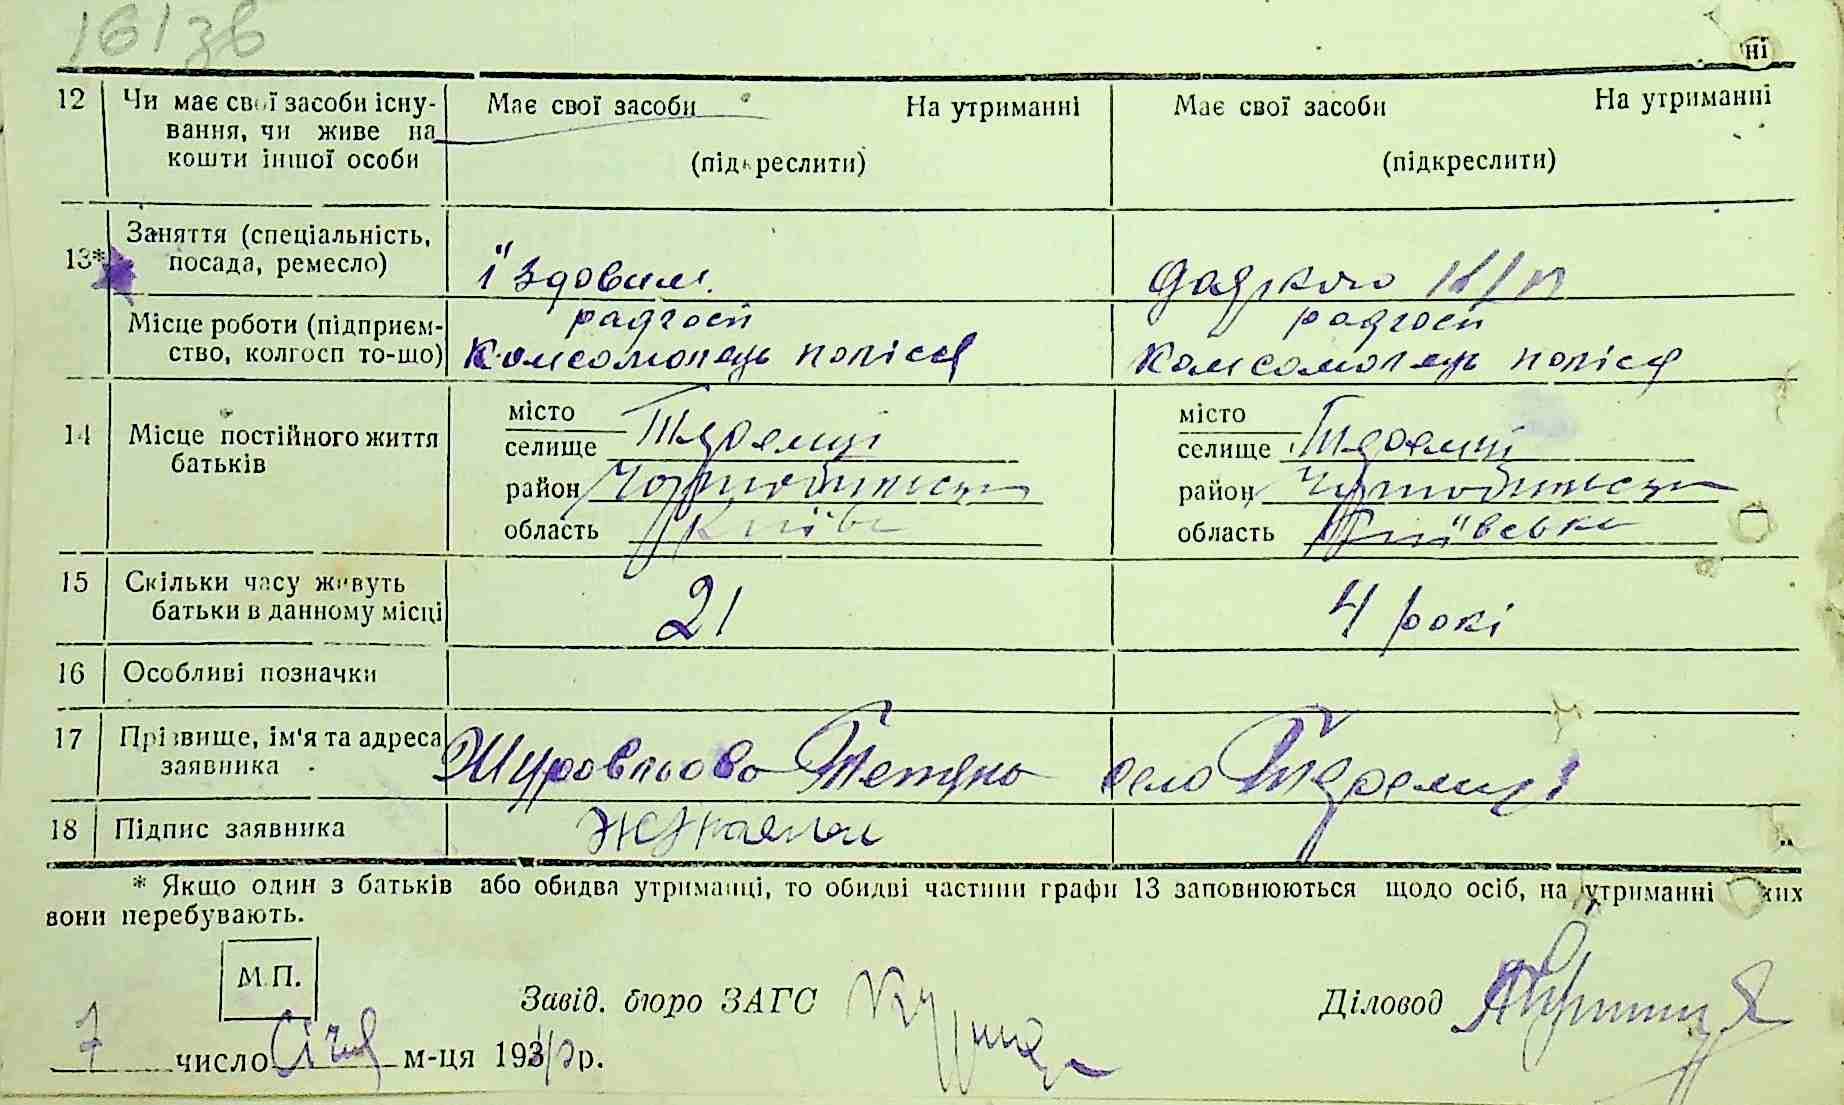 161 зв
ні
12 Чи має свої засоби існу- Має свої засоби На утриманні Має свої засоби На утриманні
вання, чи живе на
кошти іншої особи (підкреслити) (підкреслити)
13* Заняття (спеціальність,
посада, ремесло) їздовим. дояркою
Місце роботи (підприєм- радгосп радгосп
ство, колгосп то-що) Комсомолець полісся Комсомолець полісся
14 Місце постійного життя місто місто
батьків селище селище
район Чорнобильськ район Чорнобильськ
область Київс область Київська
15 Скільки часу живуть
батьки в данному місці 21 4 рокі
16 Особливі позначки
17 Прізвище, ім'я та адреса
заявника Журовльова Тетяна село
18 Підпис заявника
* Якщо один з батьків або обидва утриманці, то обидві частини графи 13 заповнюються щодо осіб, на утриманні яких
вони перебувають.
М.П.
Завід. бюро ЗАГС Діловод
7 число Січня м-ця 193 р.